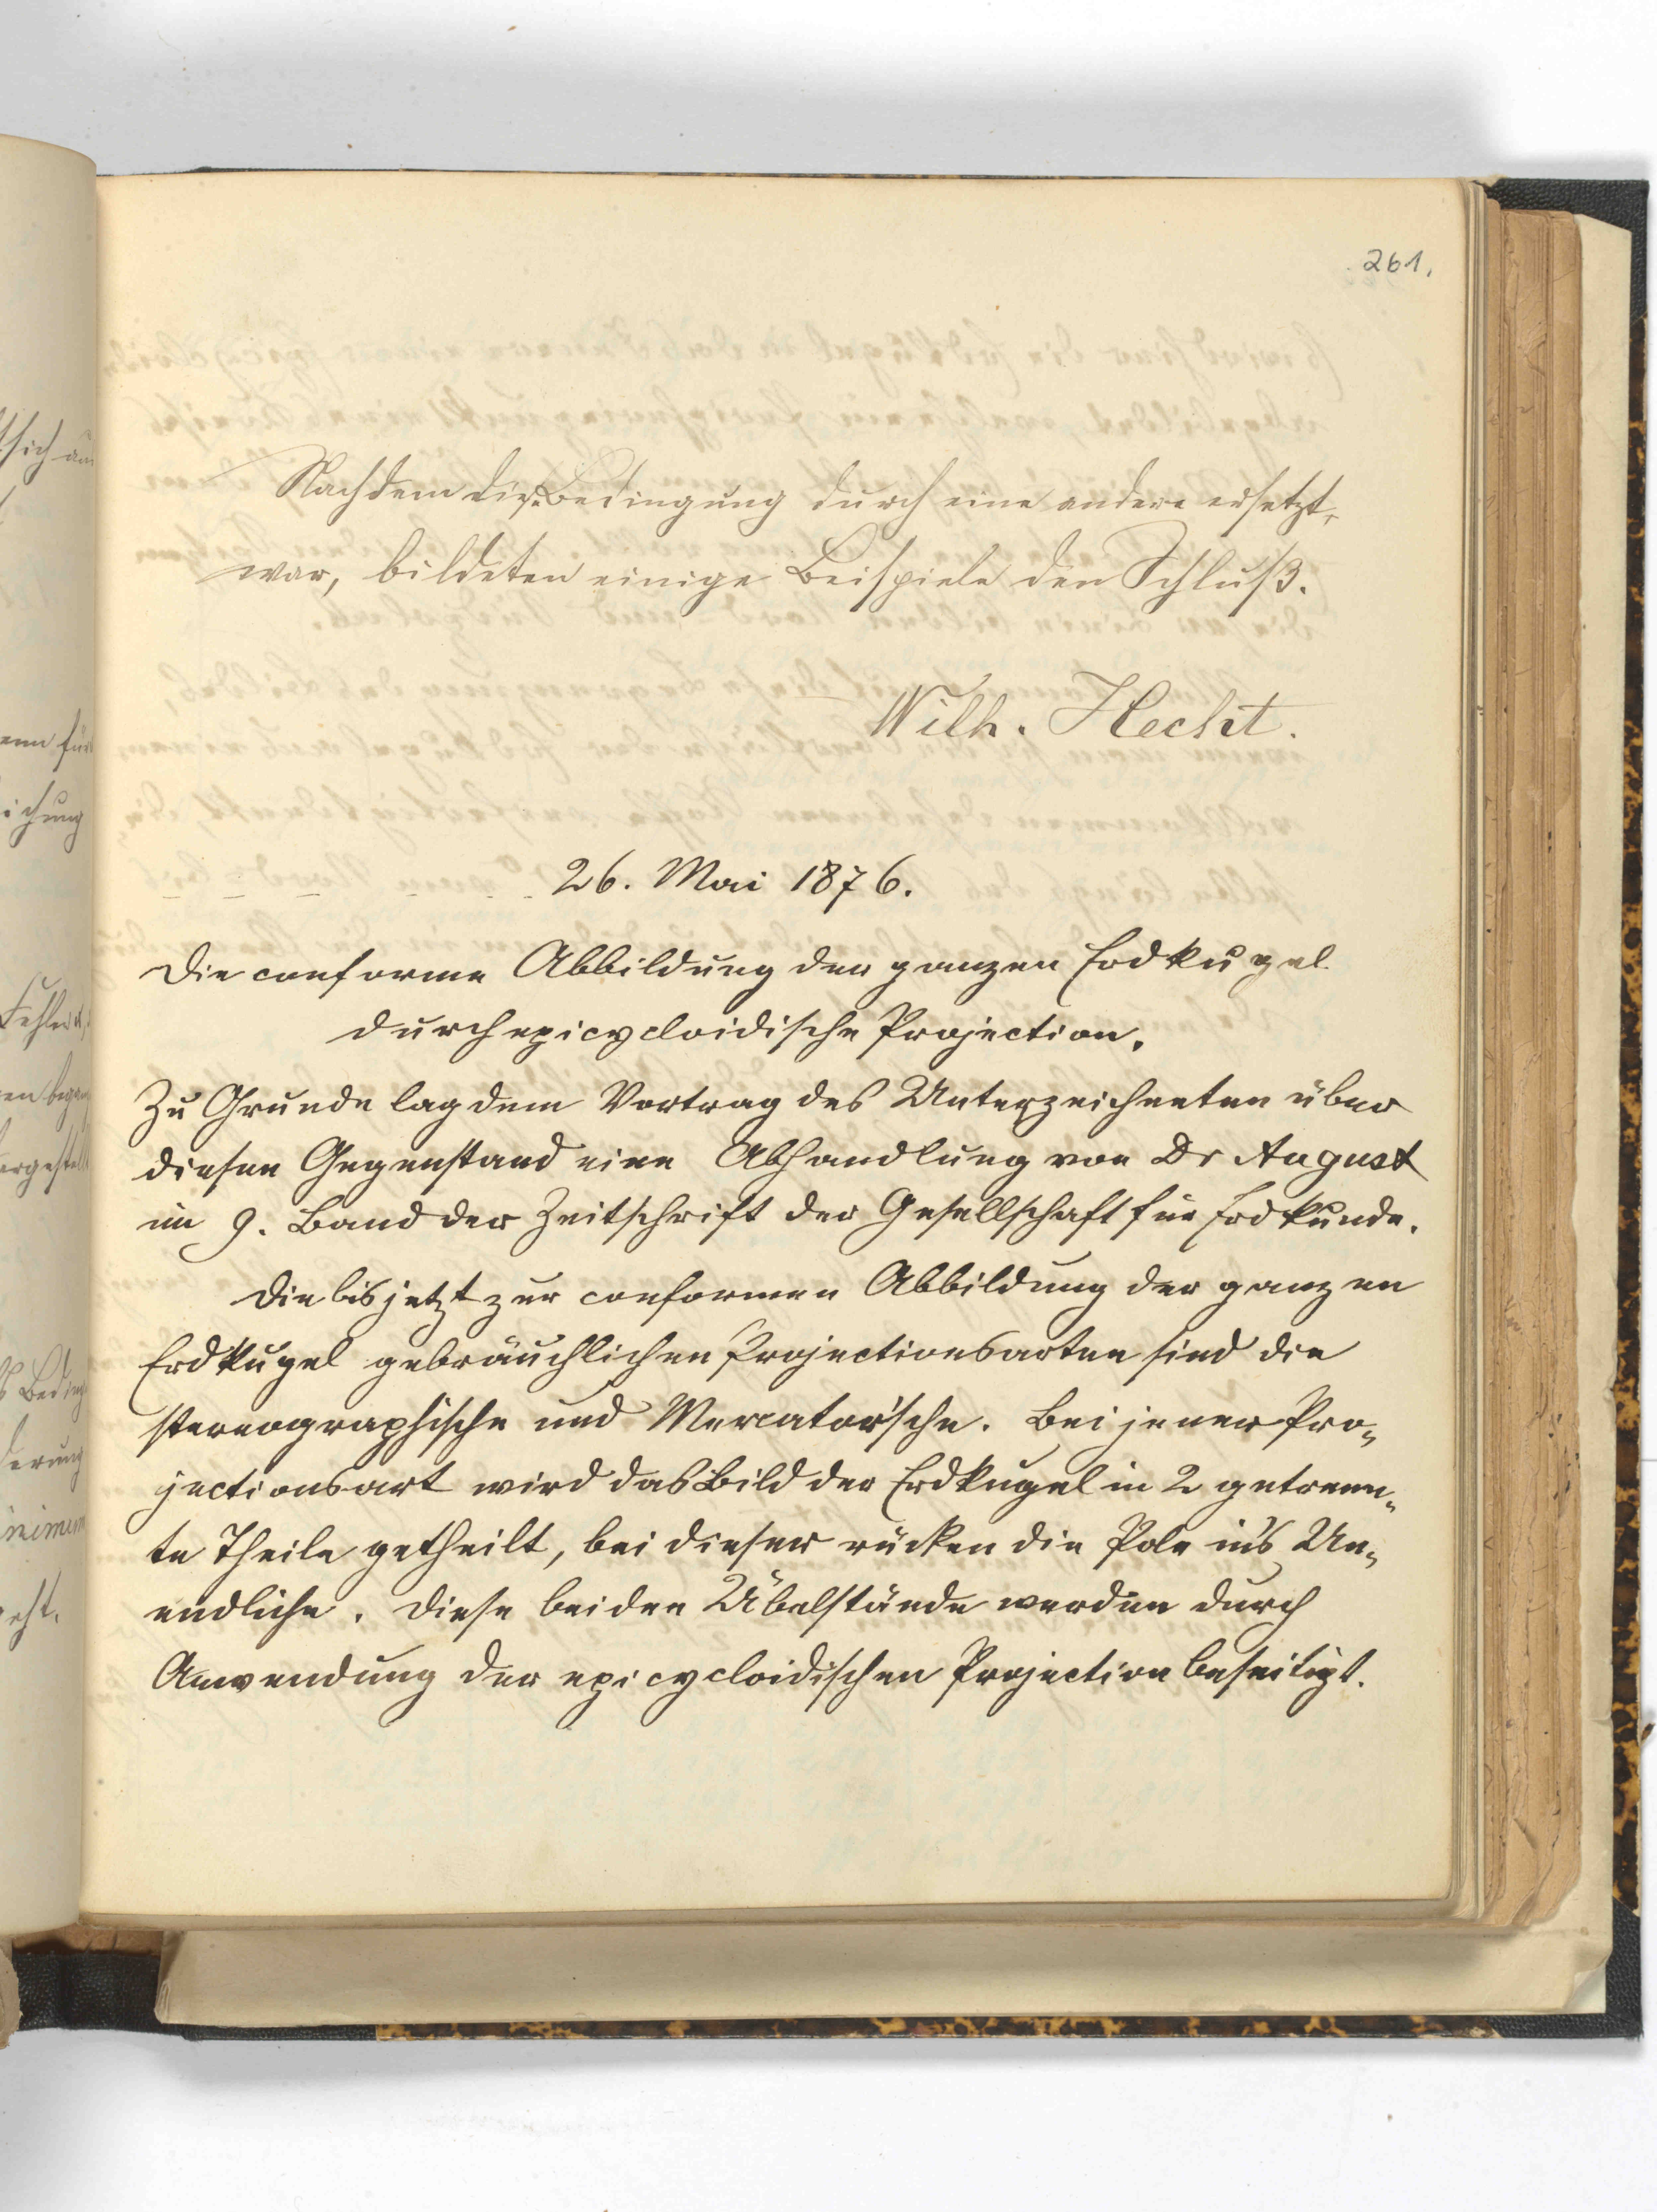 261.
Nachdem diese Bedingung durch eine andere ersetzt
war, bildeten einige Beispiele den Schluß.
Wilh. Hecht.
26. Mai 1876.
Die conforme Abbildung der ganzen Erdkugel
durch epicycloidische Projection.
Zu Grunde lag dem Vortrag des Unterzeichneten über
diesen Gegenstand eine Abhandlung von Dr August
im 9. Band der Zeitschrift der Gesellschaft für Erdkunde.
Die bis jetzt zur conformen Abbildung der ganzen
Erdkugel gebräuchlichen Projectionsarten sind die
stereographische und Mercator'sche. Bei jener Pro-
jectionsart wird das Bild der Erdkugel in 2 getrenn-
te Theile getheilt, bei dieser rücken die Pole in's Un-
endliche. Diese beiden Übelstände werden durch
Anwendung der epicycloidischen Projection beseitigt.